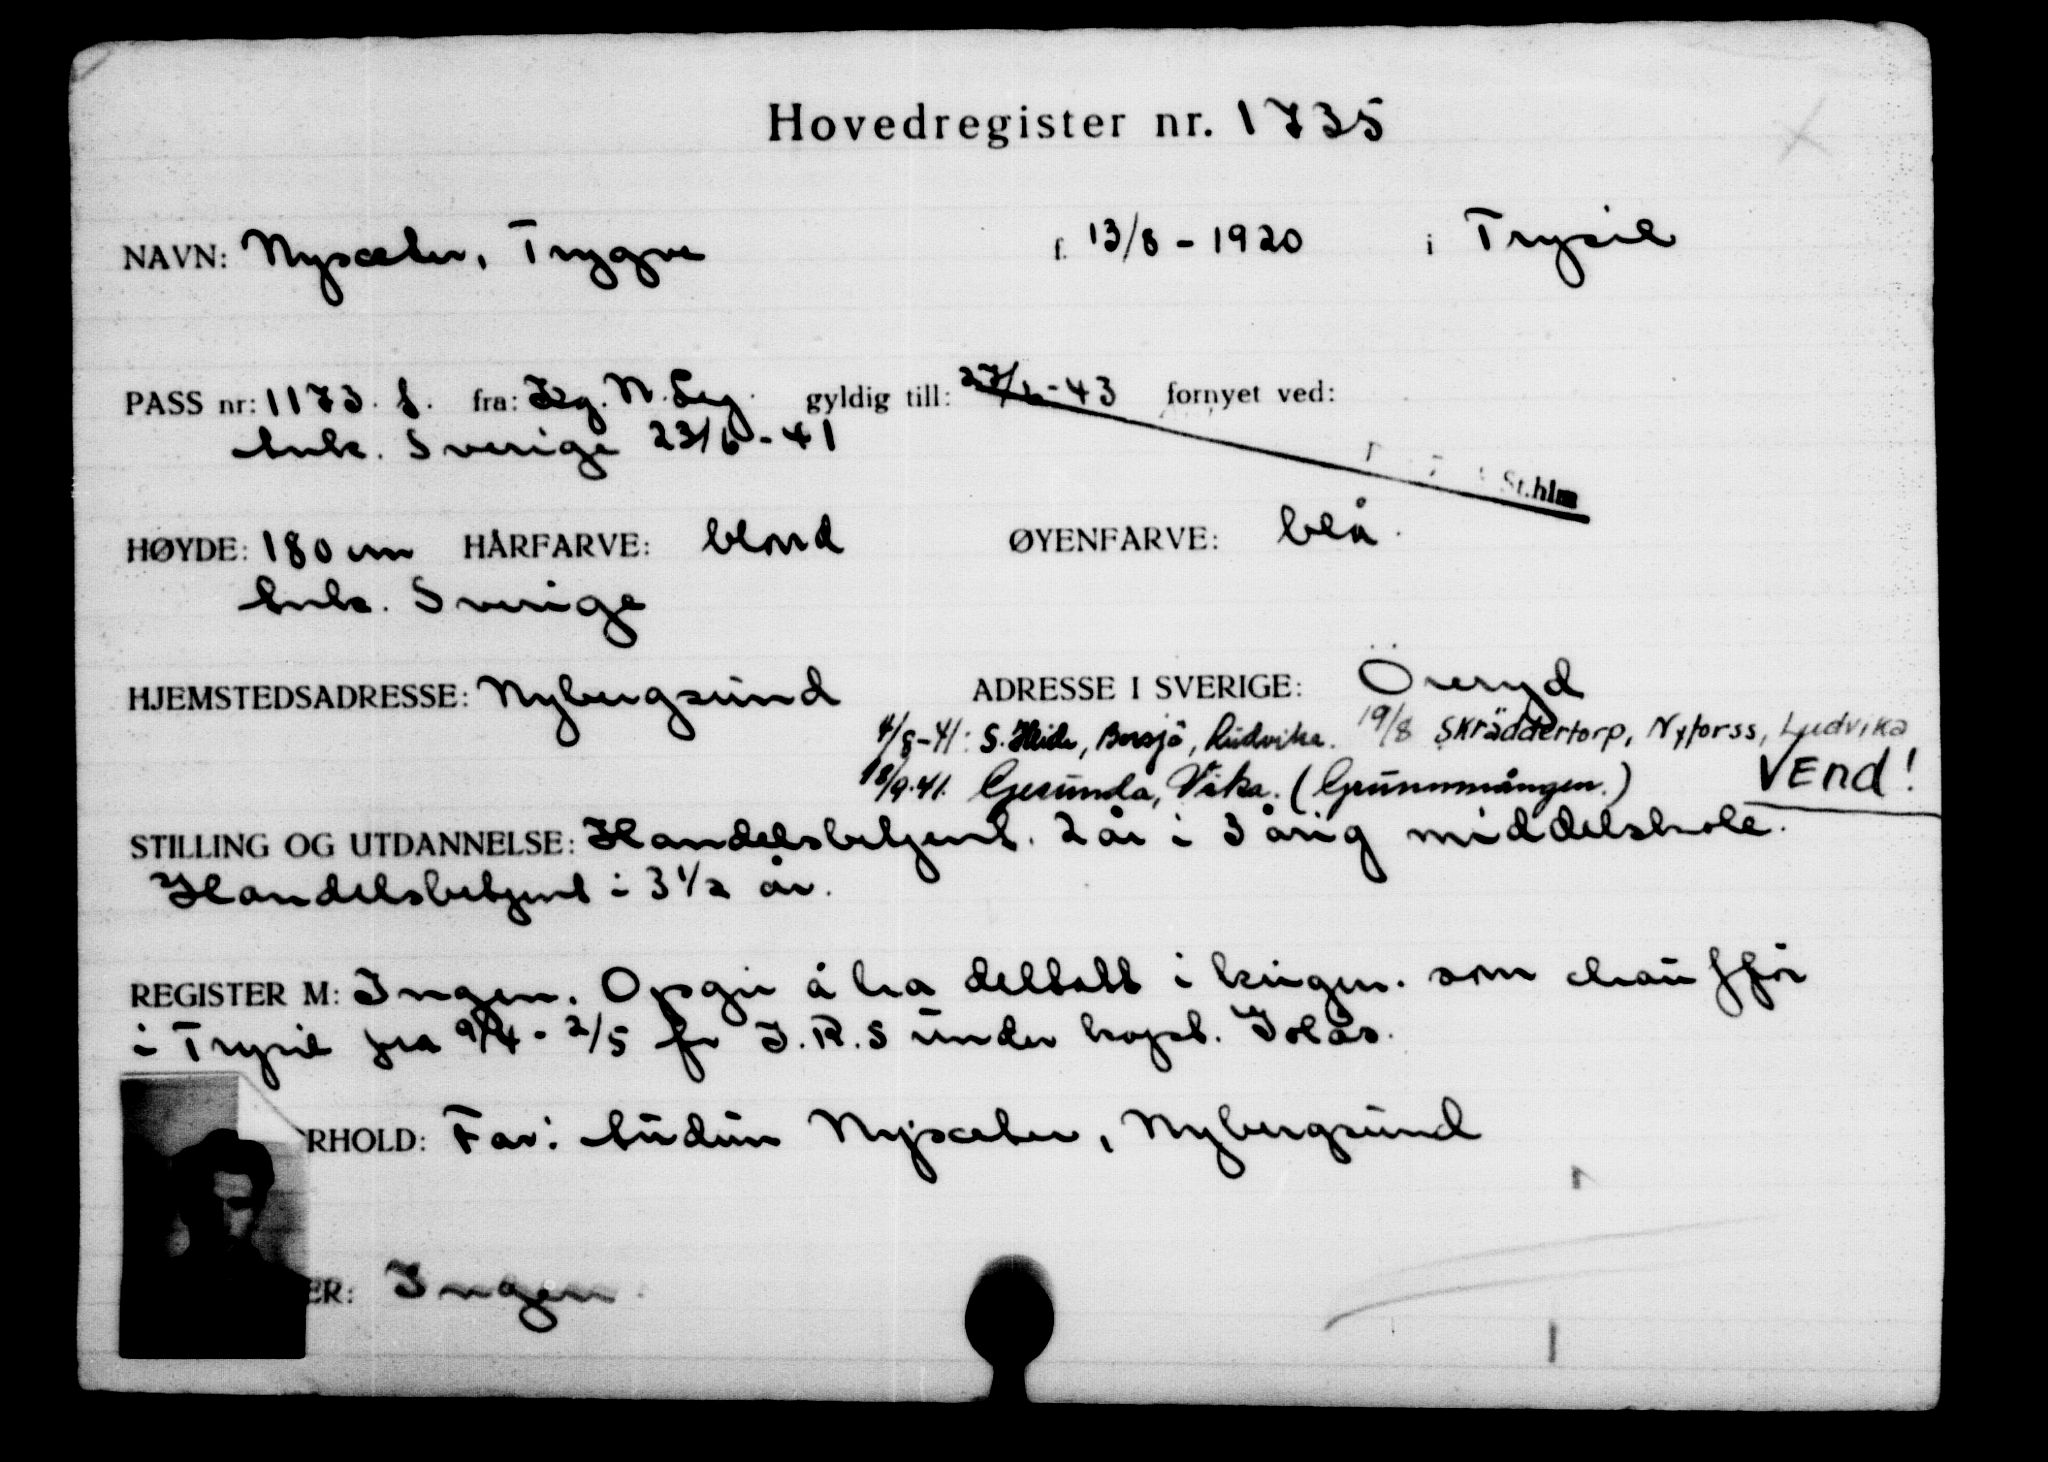 Hovedregister nr. 1735
NAVN: Nysæter, Trygve f. 13/8 - 1920 i Trysil
PASS nr: 1173. f. fra: Kg. N. Leg. gyldig till: 23/6-43 fornyet ved:
Ank. Sverige 23/6-41
St.hlm
HØYDE: 180 cm HÅRFARVE: blond ØYENFARVE: blå.
Ank. Sverige
HJEMSTEDSADRESSE: Nybergsund ADRESSE I SVERIGE: Öreryd
4/8-41: S. Heide, Borsjö, Ludvika. 19/8 Skräddertorp, Nyforss, Ludvika
18/9.41. Gesunda, Vika. (Grunnmången.) VEnd!
STILLING OG UTDANNELSE: Handelsbetjent. 2 år i 3 årig middelskole.
Handelsbetjent i 3 1/2 år.
REGISTER M: Ingen. Opgir å ha deltatt i krigen. som chauffør
i Trysil fra 9/4 - 2/5 for I.R.5 under kapt. Islås.
RHOLD: Far: Audun Nysæter, Nybergsund
ER: Ingen.